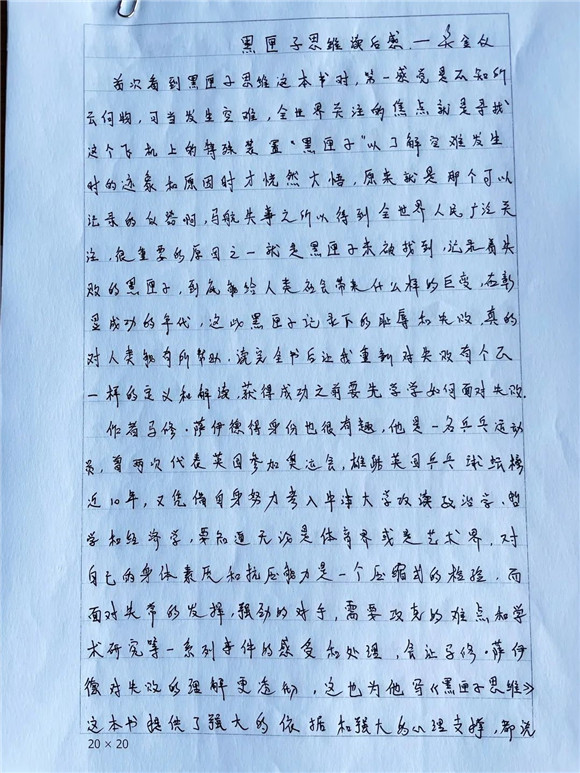 黑匣子思维读后感.—
首次看到黑匣子思维这本书时,第一感觉是不知所
云何物,可当发生空难,全世界关注的焦点就是寻找
这个飞机上的特殊装置“黑匣子”以了解空难发生
时的迹象和原因时才恍然大悟,原来就是那个可以
记录的仪器啊,马航失事之所以得到全世界人民广泛关
注,很重要的原因之一就是黑匣子未被找到,记录着失
败的黑匣子,到底能给人类社会带来什么样的巨变,在
成功的年代,这些黑匣子记录下的耻辱和失败,真的
对人类能有所帮助,读完全书后让我重新对失败有个不
一样的定义和解读,获得成功之前要先学学如何面对失败.
作者马修·萨伊德得身份也很有趣,他是一名乒乓运动
员,曾两次代表英国参加奥运会,雄踞英国乒乓球坛榜
近10年,又凭借自身努力考入牛津大学攻读政治学、哲
学和经济学,要知道无论是体育界或是艺术界,对
自己的身体素质和抗压能力是一个压缩式的检验,而
面对失常的发挥,强劲的对手,需要攻克的难点和学
术研究等一系列事件的感受和处理,会让马修·萨伊
德对失败的理解更透彻,这也为他写《黑匣子思维》
这本书提供了强大的依据和强大的心理支撑,都说
20×20